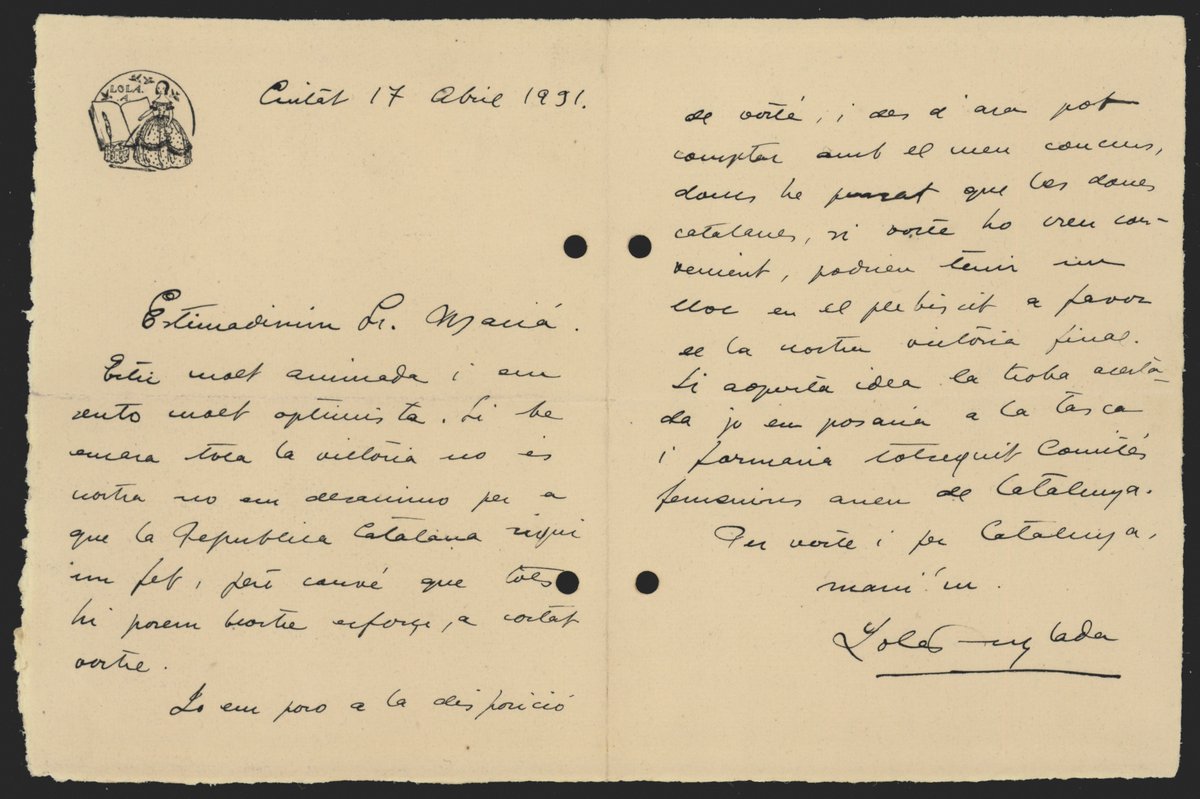 LOLA
A
Ciutat 17 Abril 1931.
Estimadíssim Sr. Macià.
Estic molt animada i em
sento molt optimista. Si be
encara tota la victòria no és
nostra no em desanimo per a
que la Republica Catalana sigui
un fet, però convé que tots
hi posem nostre esforç, a costat
vostre.
Jo em poso a la disposició
de vostè, i des d'ara pot
comptar amb el meu concurs,
doncs he pensat que les dones
catalanes, si vostè ho creu con-
venient, podrien tenir un
lloc en el plebiscit a favor
de la nostra victòria final.
Si aquesta idea la troba acerta-
da jo em posaria a la tasca
i formaria totseguit Comités
femenins arreu de Catalunya.
Per vostè i per Catalunya,
mani'm.
Lola Anglada